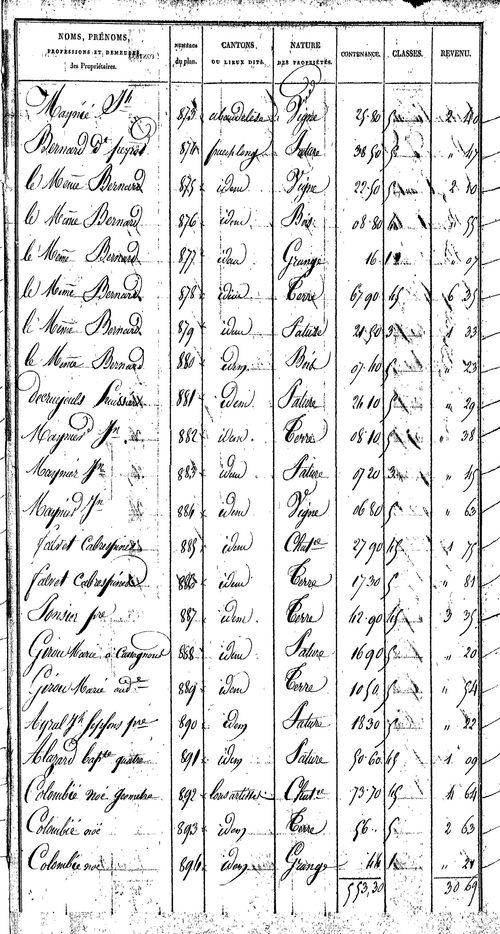 NOMS, PRÉNOMS, PROFESSIONS ET DEMEURES des Propriétaires. NUMÉROS du plan. CANTONS, OU LIEUX DITS. NATURE DES PROPRIÉTÉS. CONTENANCE. CLASSES. REVENU.
873 Vigne 25.80 5 2 40
Bernard 874 Pature 38 50 5 " 47
le Même Bernard 875 idem Vigne 22.50 5 2 10
le Même Bernard 876 idem Bois 08.80 " 55
le Même Bernard 877 idem Grange 16 1 " 07
le Même Bernard 878 idem Terre 67 90 45 6 35
le Même Bernard 879 idem Pature 21.50 3 1 33
le Même Bernard 880 idem Bois 07.40 5 " 23
881 idem Pature 24 10 5 " 29
Jn 882 idem Terre 08.10 5 " 38
Maynier Jn 883 idem Pature 07 20 3 " 45
Jn 884 idem Vigne 06 80 5 " 63
Falvet Cabrespines 885 idem Chatre 27 90 45 1 75
Falvet Cabrespines 886 idem Terre 17 30 5 " 81
pre 887 idem Terre 42.90 45 3 35
Girou Marie 888 idem Pature 16 90 5 " 20
Girou Marie 889 idem Terre 10 50 5 " 54
Ayral pre 890 idem Pature 18 30 5 " 22
Alazard 891 idem Pature 50.60 45 1 09
Colombié noé Géometre 892 Chatre 73.70 45 4 64
Colombié noé 893 idem Terre 56 5 2 63
Colombié noé 894 idem Grange 44 1 " 21
553,30 30 69